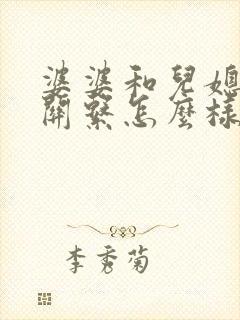 婆婆和兒媳
關繫怎麼樣
李秀菊